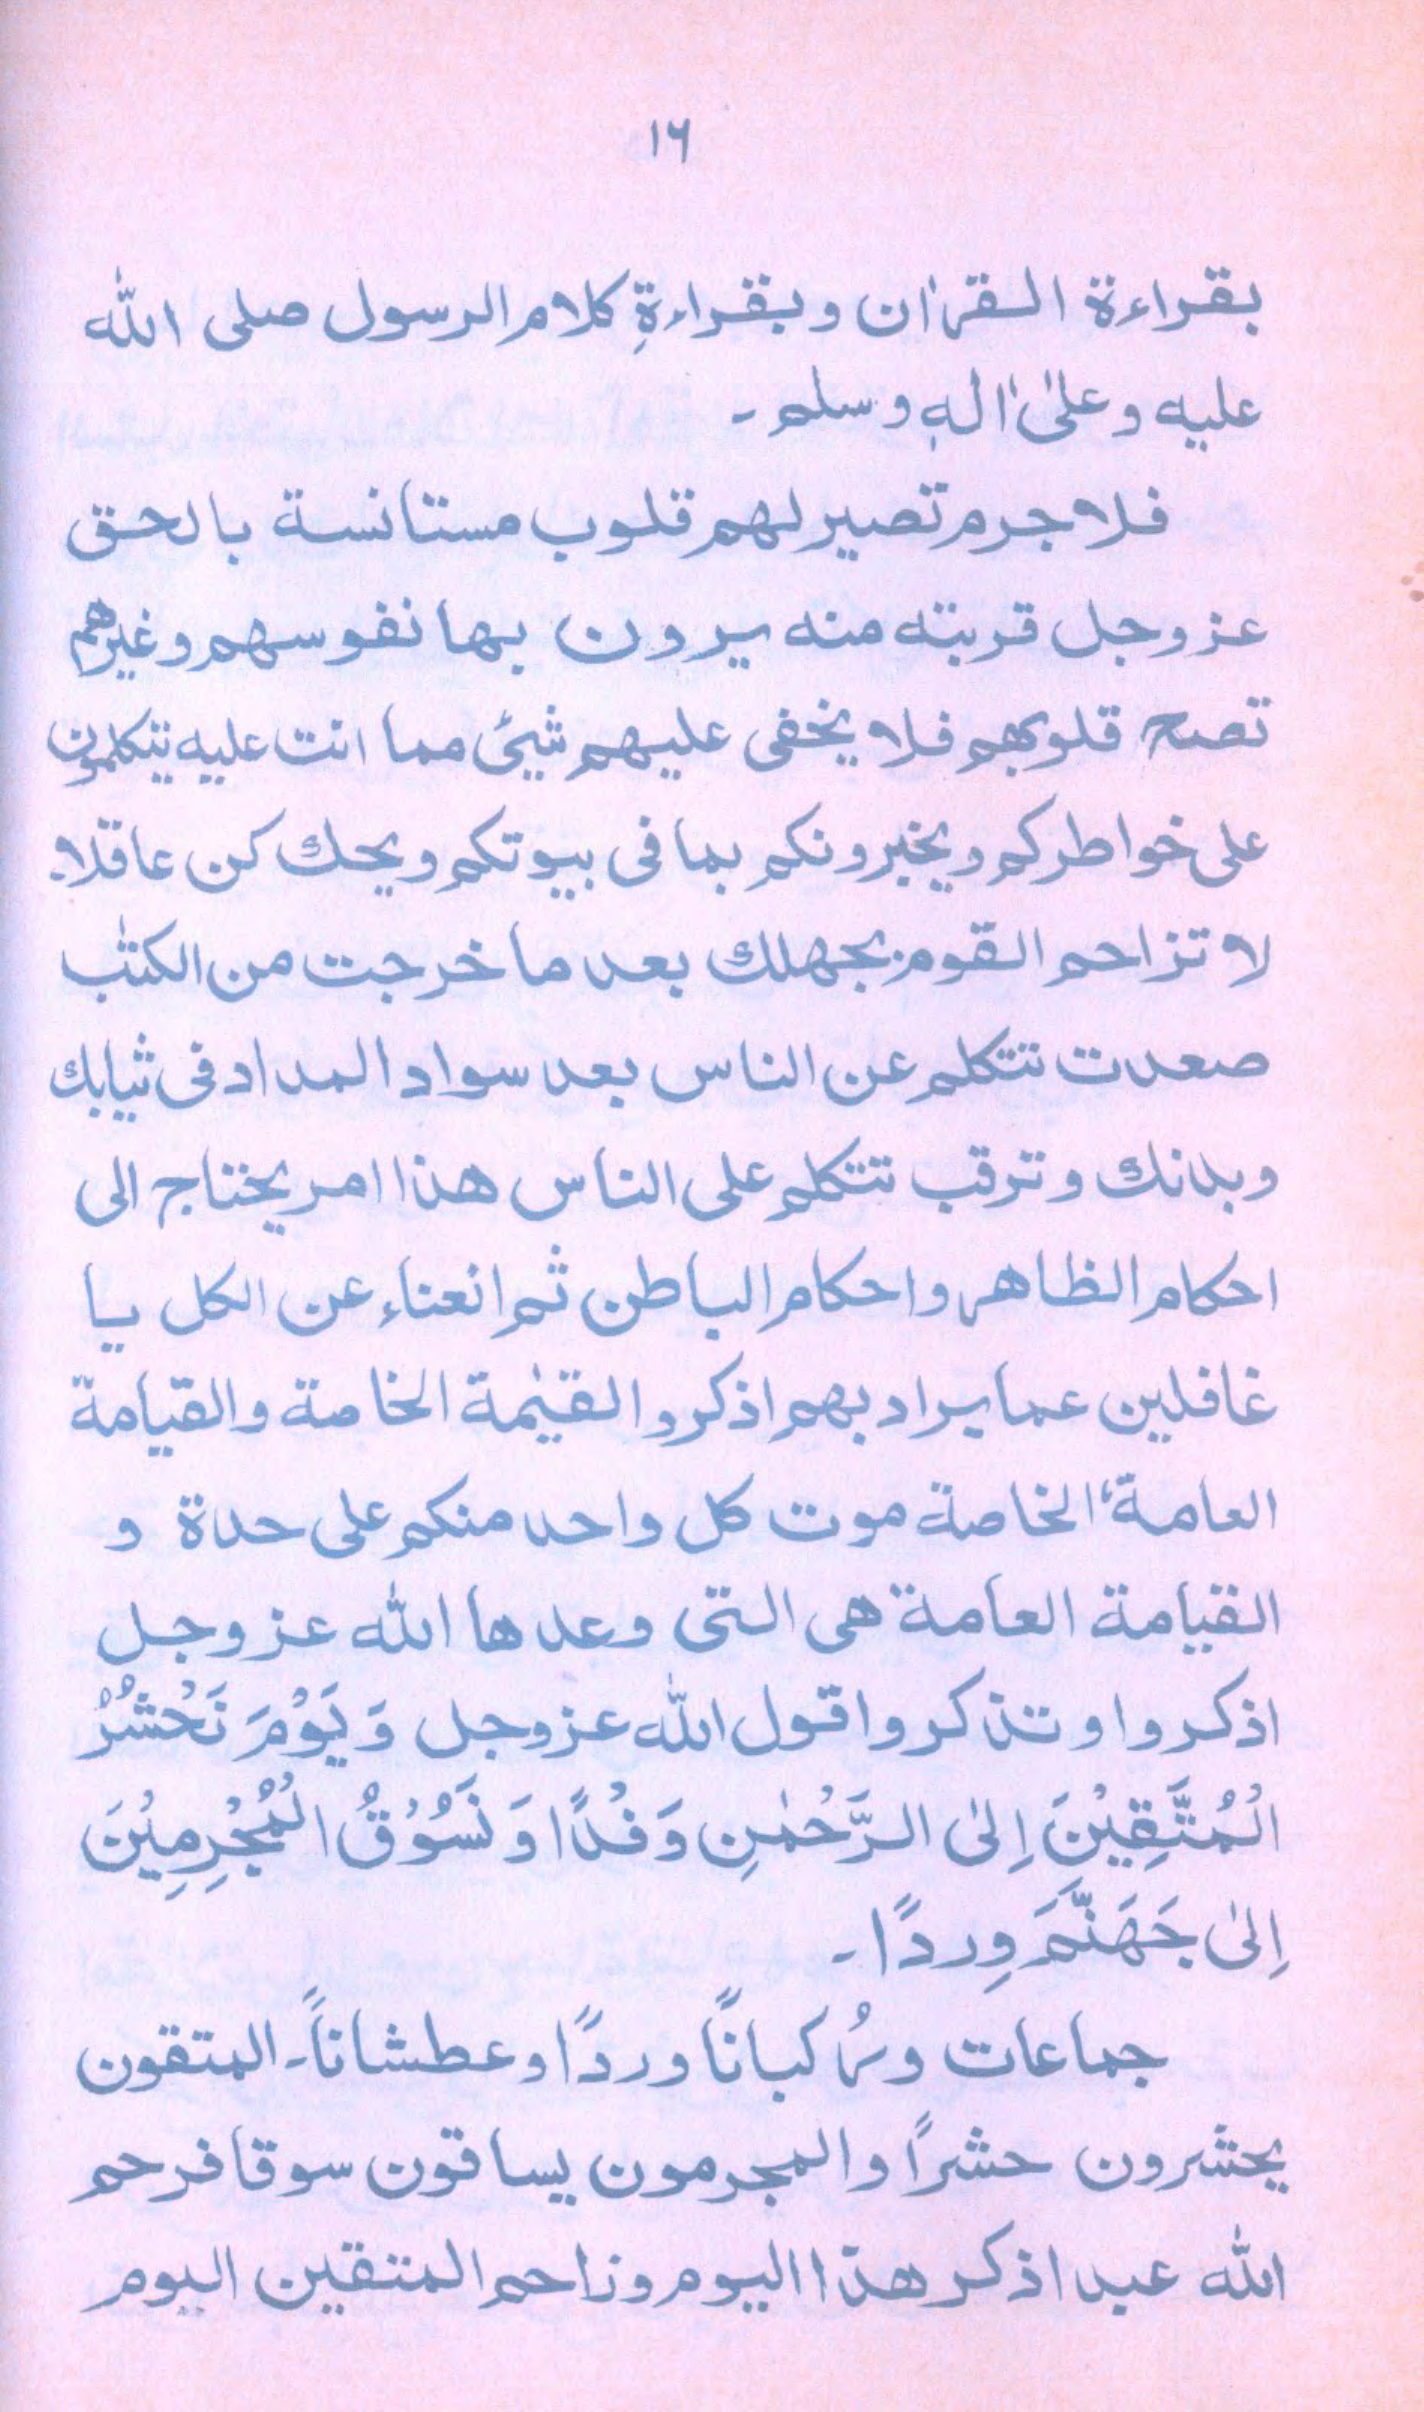 ۱۶
بقراءة القراٰن وبقراءةِ كلام الرسول صلى الله
عليه وعلىٰ اٰلهٖ وسلم۔
فلاجرم تصير لهم قلوب مستانسة بالحق
عزوجل قربته منه يرون بها نفوسهم وغيرهم
تصح قلوبهم فلا يخفى عليهم شيئ مما انت عليه يتكلمون
على خواطركم ويخبرونكم بما فى بيوتكم ويحك كن عاقلا۔
لا تزاحم القوم بجهلك بعد ما خرجت من الكتٰب
صعدت تتكلم عن الناس بعد سواد المداد فى ثيابك
وبدنك وترقب تتكلم على الناس هذا امر يحتاج الى
احكام الظاهر واحكام الباطن ثم انعناء عن الكل يا
غافلين عما يراد بهم اذكروا القيٰمة الخاصة والقيامة
العامة، الخاصة موت كل واحد منكم على حدة و
القيامة العامة هى التى وعدها الله عزوجل
اذكروا وتذكروا قول الله عزوجل وَيَوْمَ نَحْشُرُ
الْمُتَّقِيْنَ اِلىٰ الرَّحْمٰنِ وَفْدًا وَنَسُوْقُ الْمُجْرِمِيْنَ
اِلىٰ جَهَنَّمَ وِردًا۔
جماعات ورُكبانًا وردًا وعطشاناً۔ المتقون
يحشرون حشرًا والمجرمون يساقون سوقا فرحم
الله عبد اذكر هذا اليوم وزاحم المتقين اليوم